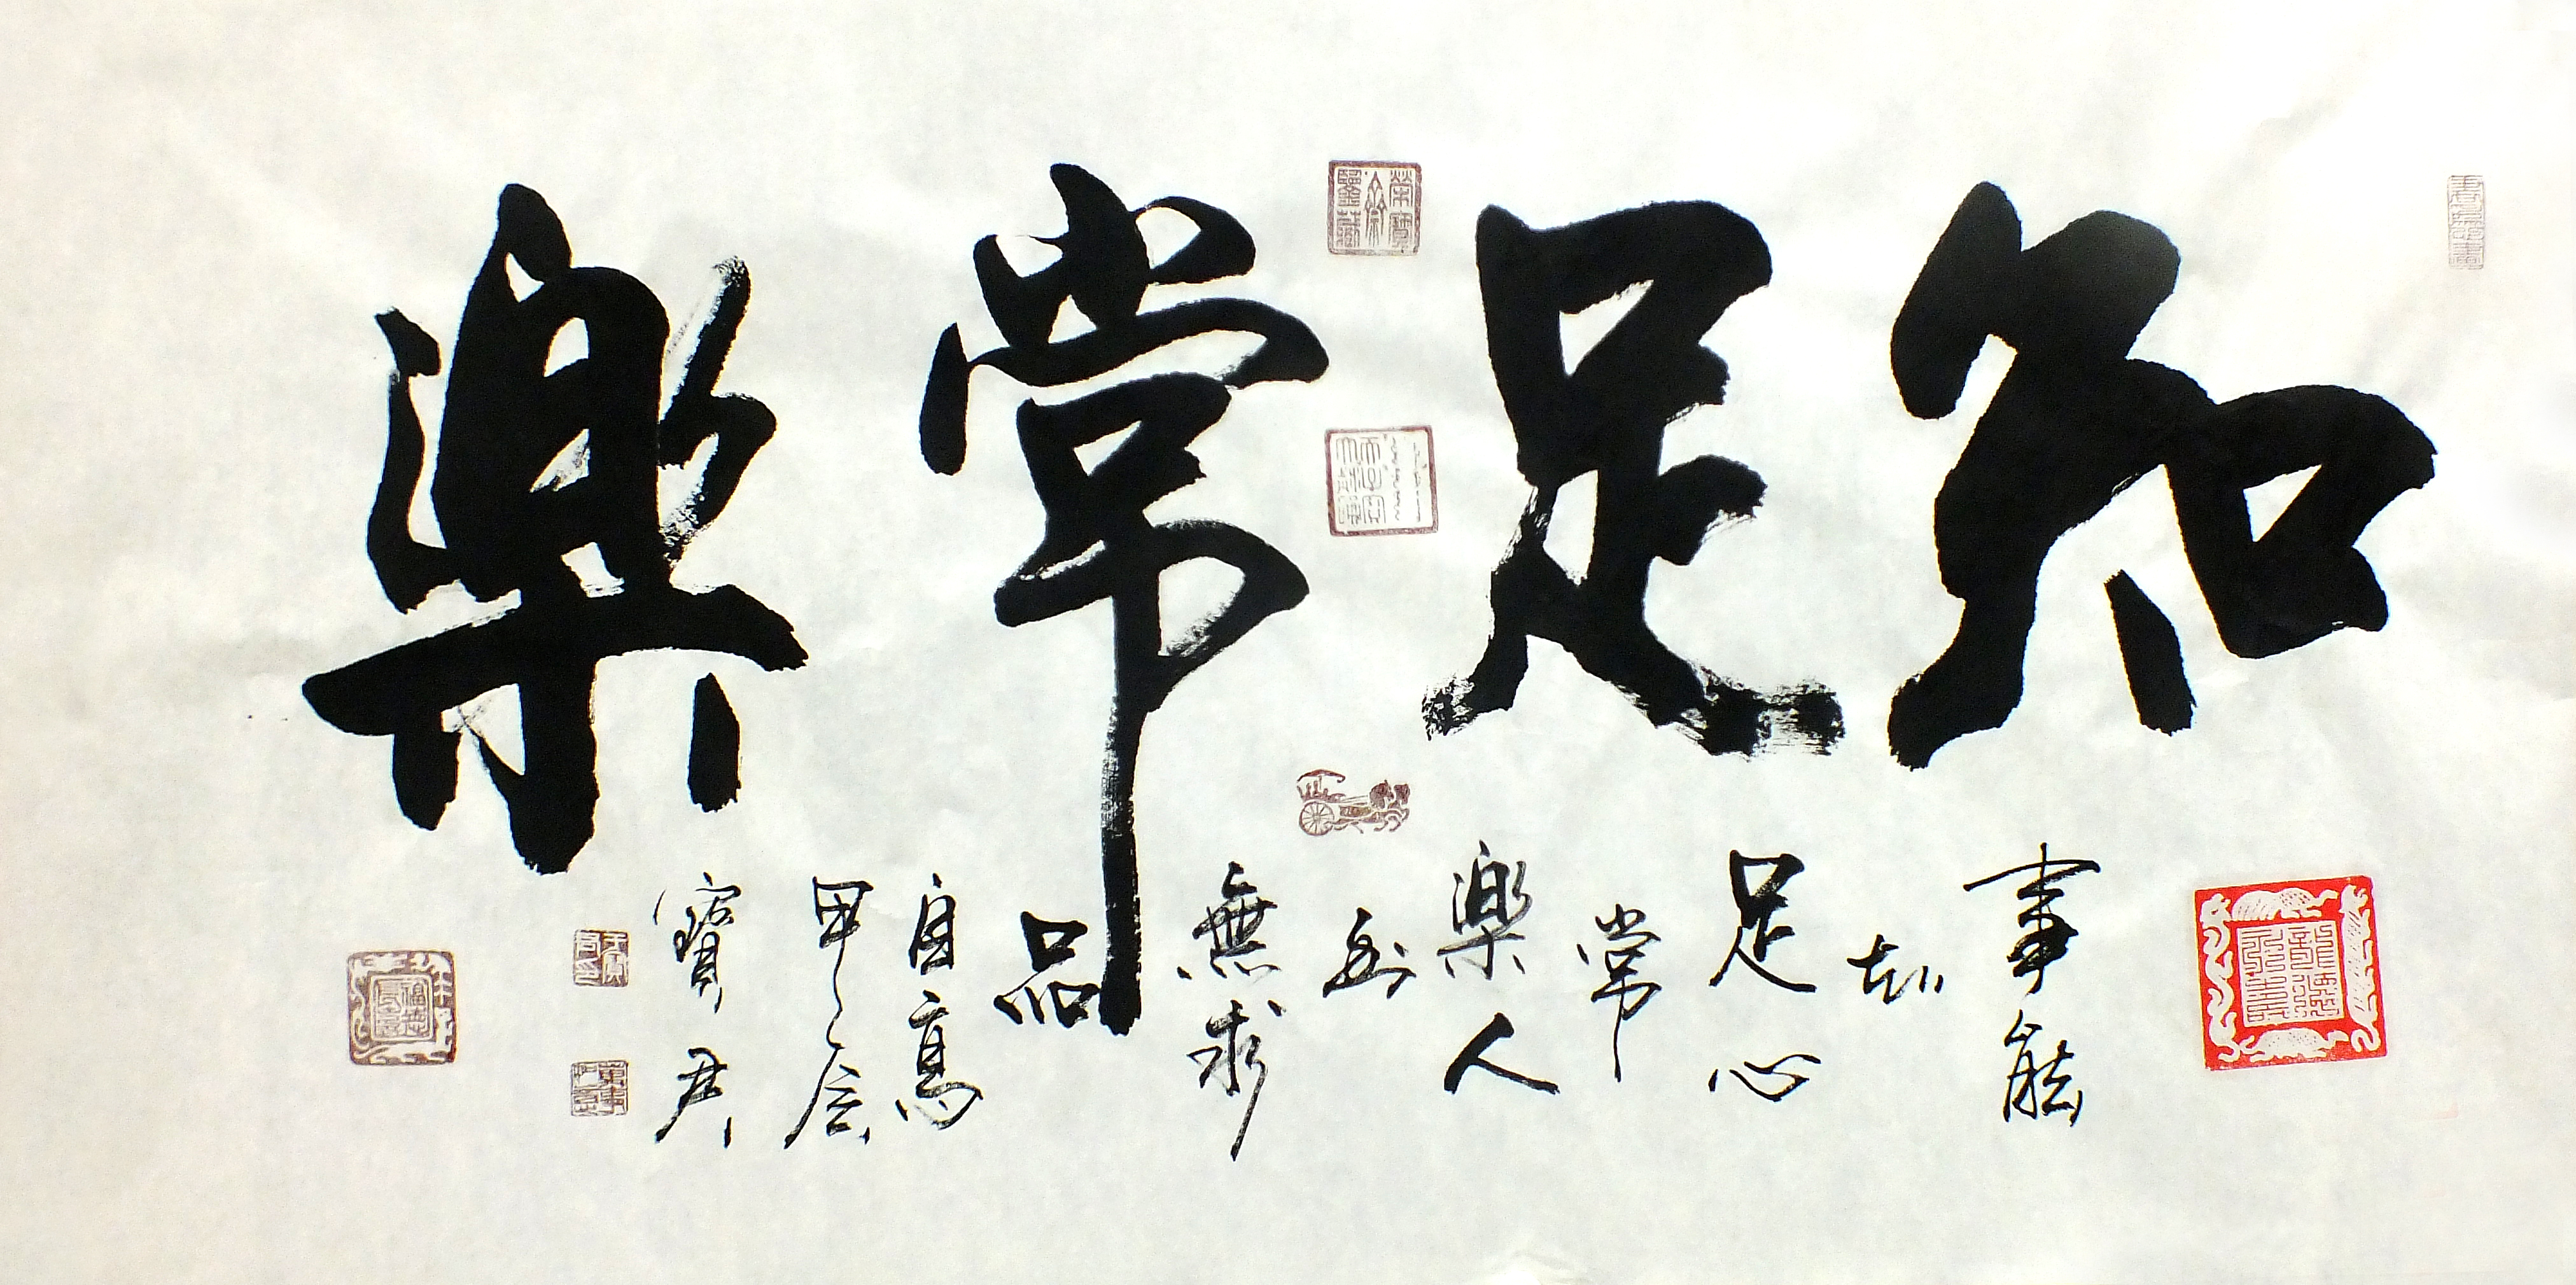 知足常樂
事能
知
足心
常
樂人
到
無求
品
自高
甲辰
寶君
萬事如意